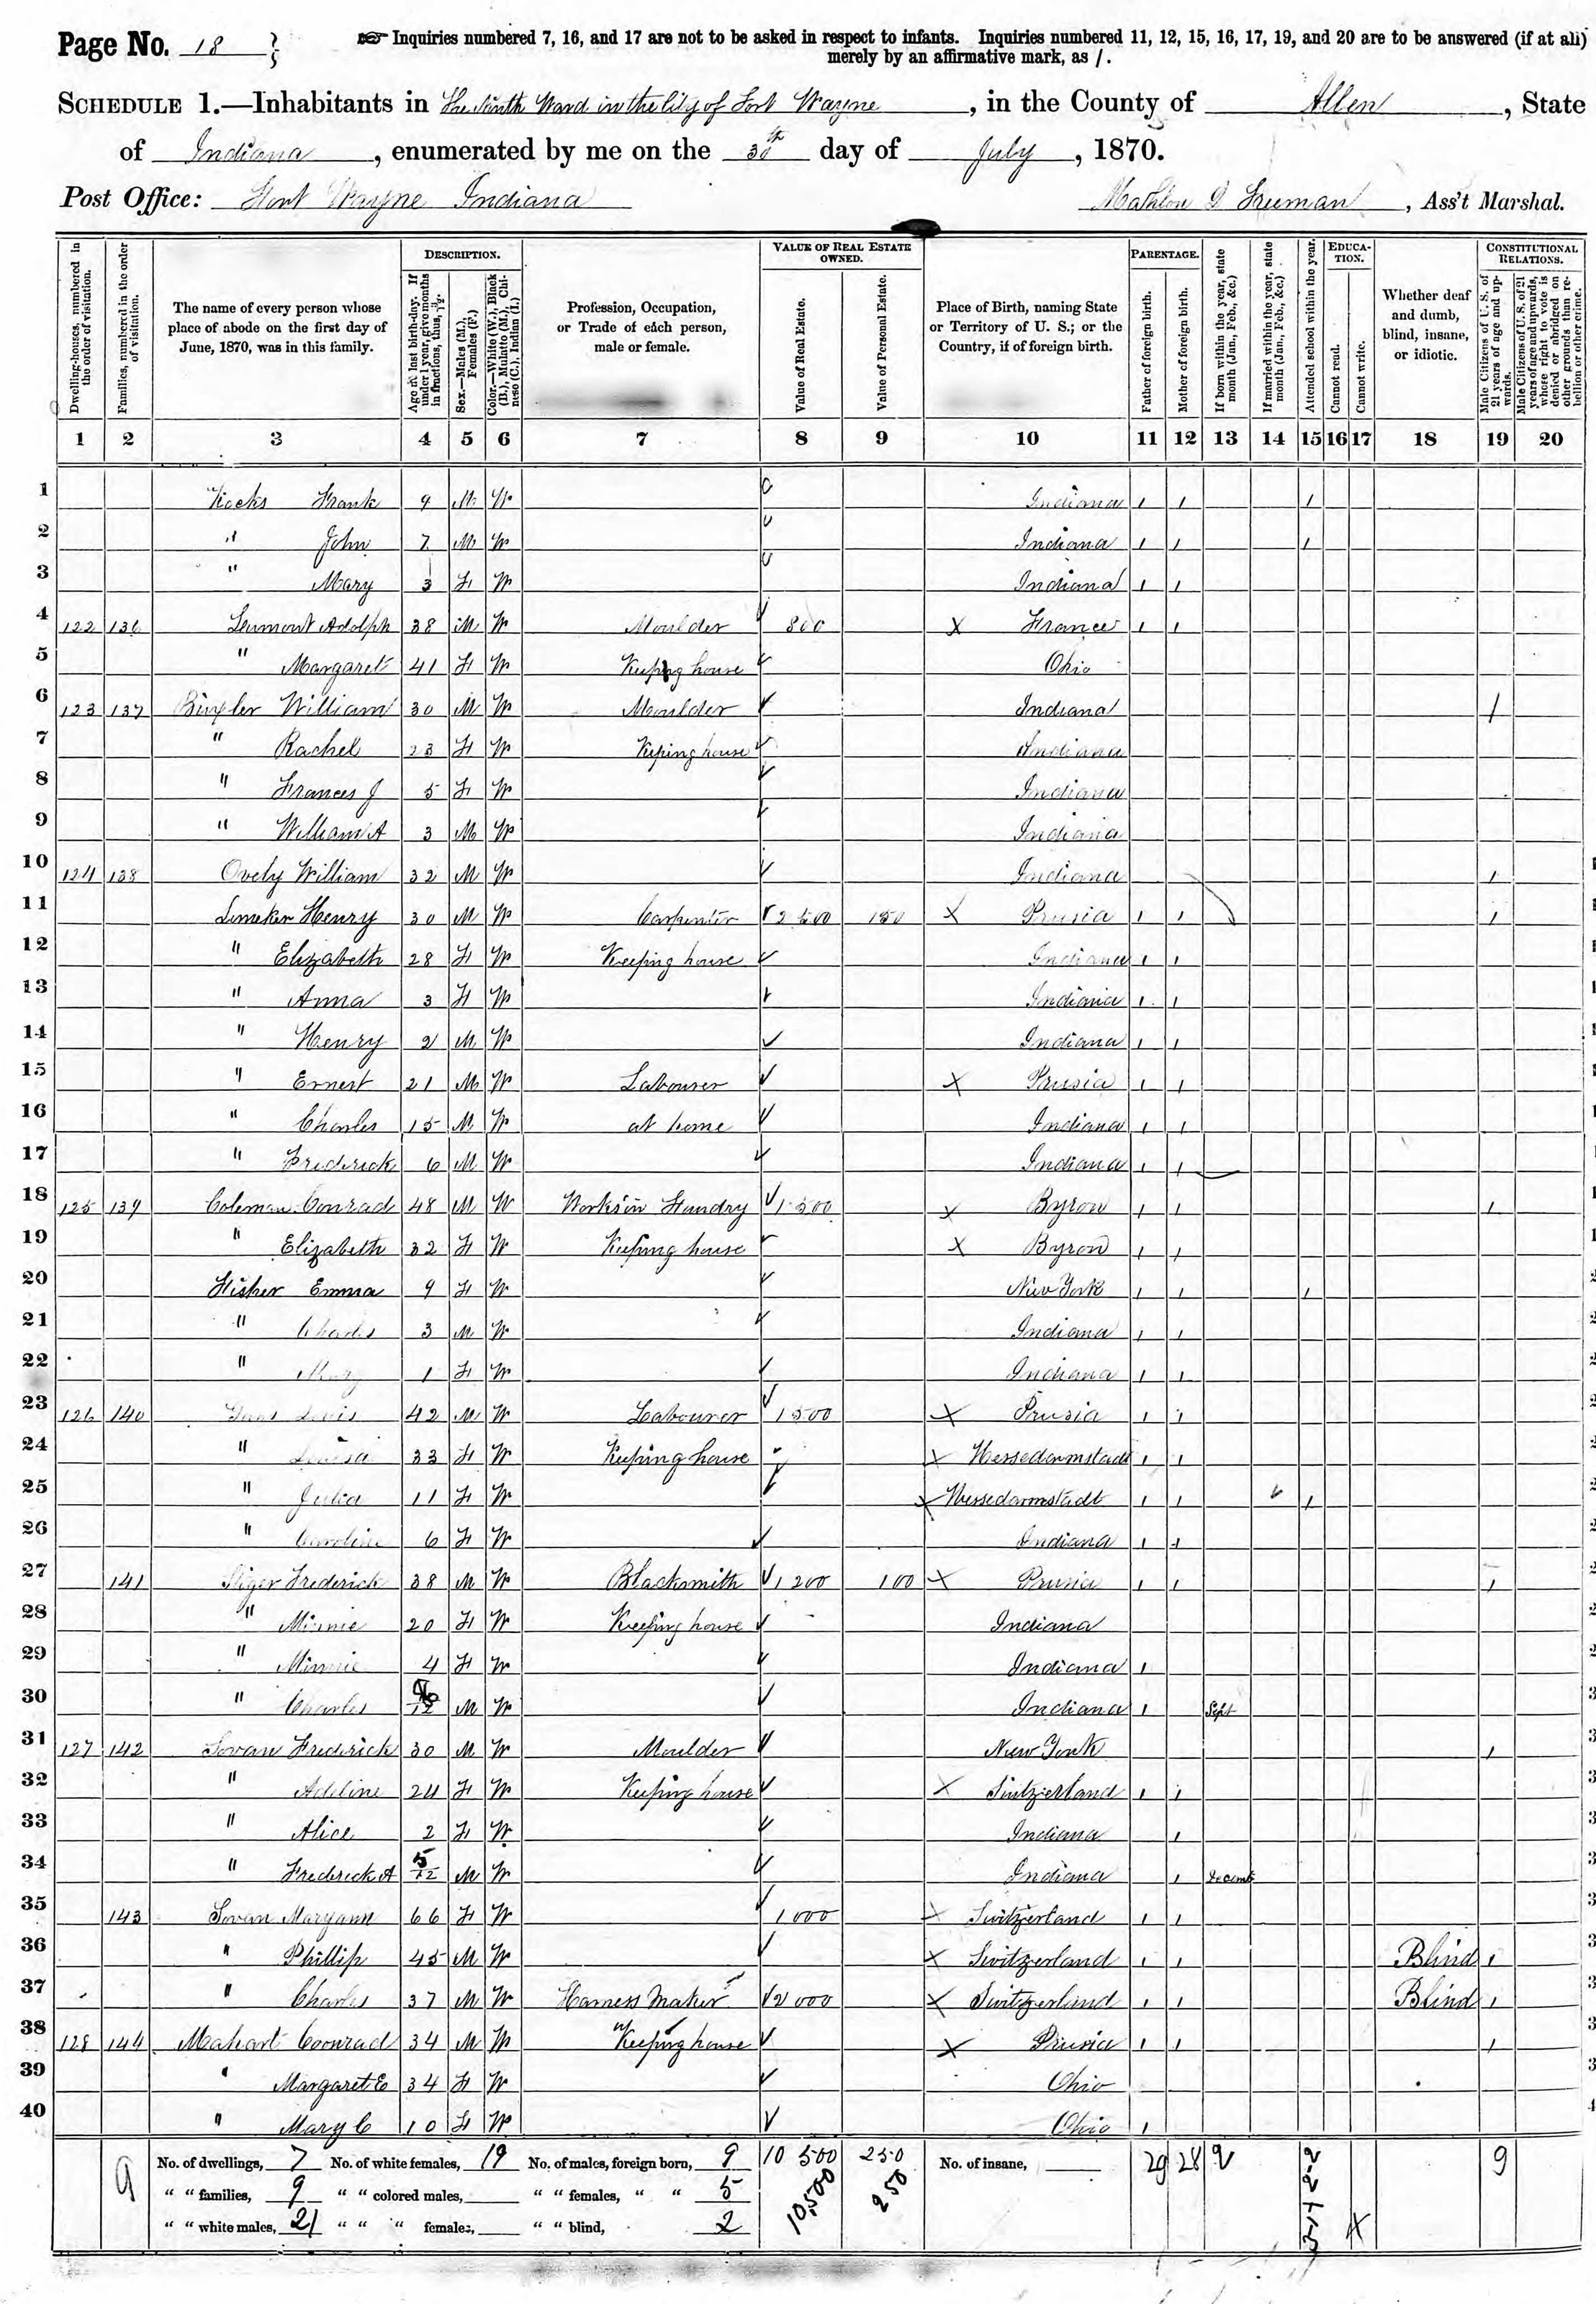 Page No. 18
☞ Inquiries numbered 7, 16, and 17 are not to be asked in respect to infants. Inquiries numbered 11, 12, 15, 16, 17, 19, and 20 are to be answered (if at all)
merely by an affirmative mark, as /.
SCHEDULE 1.—Inhabitants in the Ninth Ward in the City of Fort Wayne, in the County of Allen, State
of Indiana, enumerated by me on the 30th day of July, 1870.
Post Office: Fort Wayne Indiana Mahlon D Freeman, Ass't Marshal.
Dwelling-houses, numbered in the order of visitation.
Families, numbered in the order of visitation.
The name of every person whose place of abode on the first day of June, 1870, was in this family.
DESCRIPTION.
Age at last birth-day. If under 1 year, give months in fractions, thus, 3/12.
Sex.—Males (M.), Females (F.)
Color.—White (W.), Black (B.), Mulatto (M.), Chinese (C.), Indian (I.)
Profession, Occupation, or Trade of each person, male or female.
VALUE OF REAL ESTATE OWNED.
Value of Real Estate.
Value of Personal Estate.
Place of Birth, naming State or Territory of U. S.; or the Country, if of foreign birth.
PARENTAGE.
Father of foreign birth.
Mother of foreign birth.
If born within the year, state month (Jan., Feb., &c.)
If married within the year, state month (Jan., Feb., &c.)
Attended school within the year.
EDUCATION.
Cannot read.
Cannot write.
Whether deaf and dumb, blind, insane, or idiotic.
CONSTITUTIONAL RELATIONS.
Male Citizens of U. S. of 21 years of age and upwards.
Male Citizens of U. S. of 21 years of age and upwards, whose right to vote is denied or abridged on other grounds than rebellion or other crime.
1 2 3 4 5 6 7 8 9 10 11 12 13 14 15 16 17 18 19 20
1 Frank 9 M W Indiana / / /
2 " John 7 M W Indiana / / /
3 " Mary 3 F W Indiana / /
4 122 136 Adolph 38 M W Moulder 800 X France / /
5 " Margaret 41 F W Keeping house Ohio
6 123 137 William 30 M W Moulder Indiana /
7 " Rachel 23 F W Keping house Indiana
8 " Frances J 5 F W Indiana
9 " William A 3 M W Indiana
10 124 138 Ovely William 32 M W Indiana /
11 Henry 30 M W Carpenter 2500 150 X Prusia / / /
12 " Elizabeth 28 F W Keeping house Indiana / /
13 " Anna 3 F W Indiana / /
14 " Henry 2 M W Indiana / /
15 " Ernest 21 M W Labourer X Prusia / /
16 " Charles 15 M W at home Indiana / /
17 " Frederick 6 M W Indiana / /
18 125 139 Coleman Conrad 48 M W Works in Fundry 1500 X Byron / / /
19 " Elizabeth 32 F W Keeping house X Byron / /
20 Fisher Emma 9 F W New York / / /
21 " Charles 3 M W Indiana / /
22 " Mary 1 F W Indiana / /
23 126 140 Louis 42 M W Labourer 1500 X Prusia / /
24 " Louisa 33 F W Keeping house X Hessedarmstadt / /
25 " Julia 11 F W X Hessedarmstadt / / /
26 " Caroline 6 F W Indiana / /
27 141 Frederick 38 M W Blacksmith 1200 100 X Prusia / / /
28 " Minnie 20 F W Keeping house Indiana
29 " Minnie 4 F W Indiana /
30 " Charles M W Indiana / Sept
31 127 142 Sovan Frederick 30 M W Moulder New York /
32 " Adeline 24 F W Keeping house X Switzerland / /
33 " Alice 2 F W Indiana /
34 " Frederick A 5/12 M W Indiana /
35 143 Sovan Maryann 66 F W 1000 X Switzerland / /
36 " Phillip 45 M W X Switzerland / / Blind /
37 " Charles 37 M W Harness Maker 2000 X Switzerland / / Blind /
38 128 144 Mahart Coonrad 34 M W Keeping house X Prusia / / /
39 " Margaret E 34 F W Ohio
40 " Mary C 10 F W Ohio /
9 No. of dwellings, 7 No. of white females, 19 No. of males, foreign born, 9 10 500 250 No. of insane, 29 28 2 9
" " families, 9 " " colored males, " " females, " " 5 10,500 250
" " white males, 21 " " " females, " " blind, 2